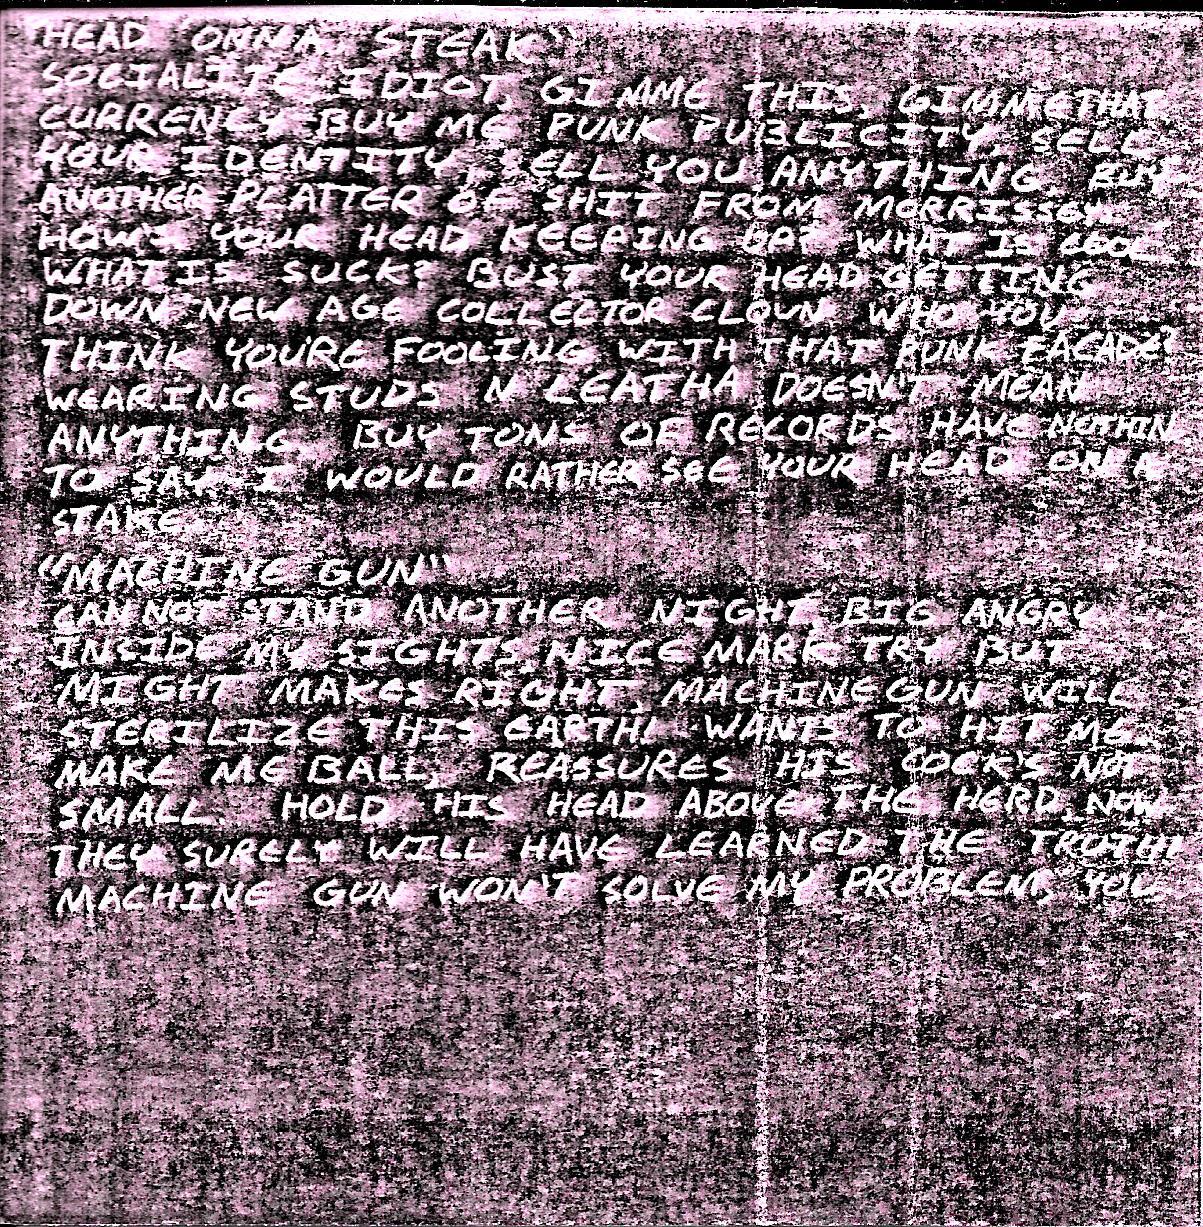 "HEAD ONNA STEAK"
SOCIALITE IDIOT, GIMME THIS, GIMMETHAT
CURRENCY BUY ME PUNK PUBLICITY, SELL
YOUR IDENTITY, SELL YOU ANYTHING, BUY
ANOTHER PLATTER OF SHIT FROM MORRISSEY.
HOW'S YOUR HEAD KEEPING UP? WHAT IS COOL
WHAT IS SUCK? BUST YOUR HEAD GETTING
DOWN NEW AGE COLLECTOR CLOWN WHO YOU
THINK YOURE FOOLING WITH THAT PUNK FACADE?
WEARING STUDS N LEATHA DOESN'T MEAN
ANYTHING. BUY TONS OF RECORDS HAVE NOTHIN
TO SAY I WOULD RATHER SEE YOUR HEAD ON A
STAKE.
"MACHINE GUN"
CANNOT STAND ANOTHER NIGHT, BIG ANGRY
INSIDE MY SIGHTS, NICE MARK TRY BUT
MIGHT MAKES RIGHT, MACHINE GUN WILL
STERILIZE THIS EARTH! WANTS TO HIT ME,
MAKE ME BALL, REASSURES HIS COCK'S NOT
SMALL. HOLD HIS HEAD ABOVE THE HERD, NOW
THEY SURELY WILL HAVE LEARNED THE TRUTH!
MACHINE GUN WON'T SOLVE MY PROBLEM, YOU